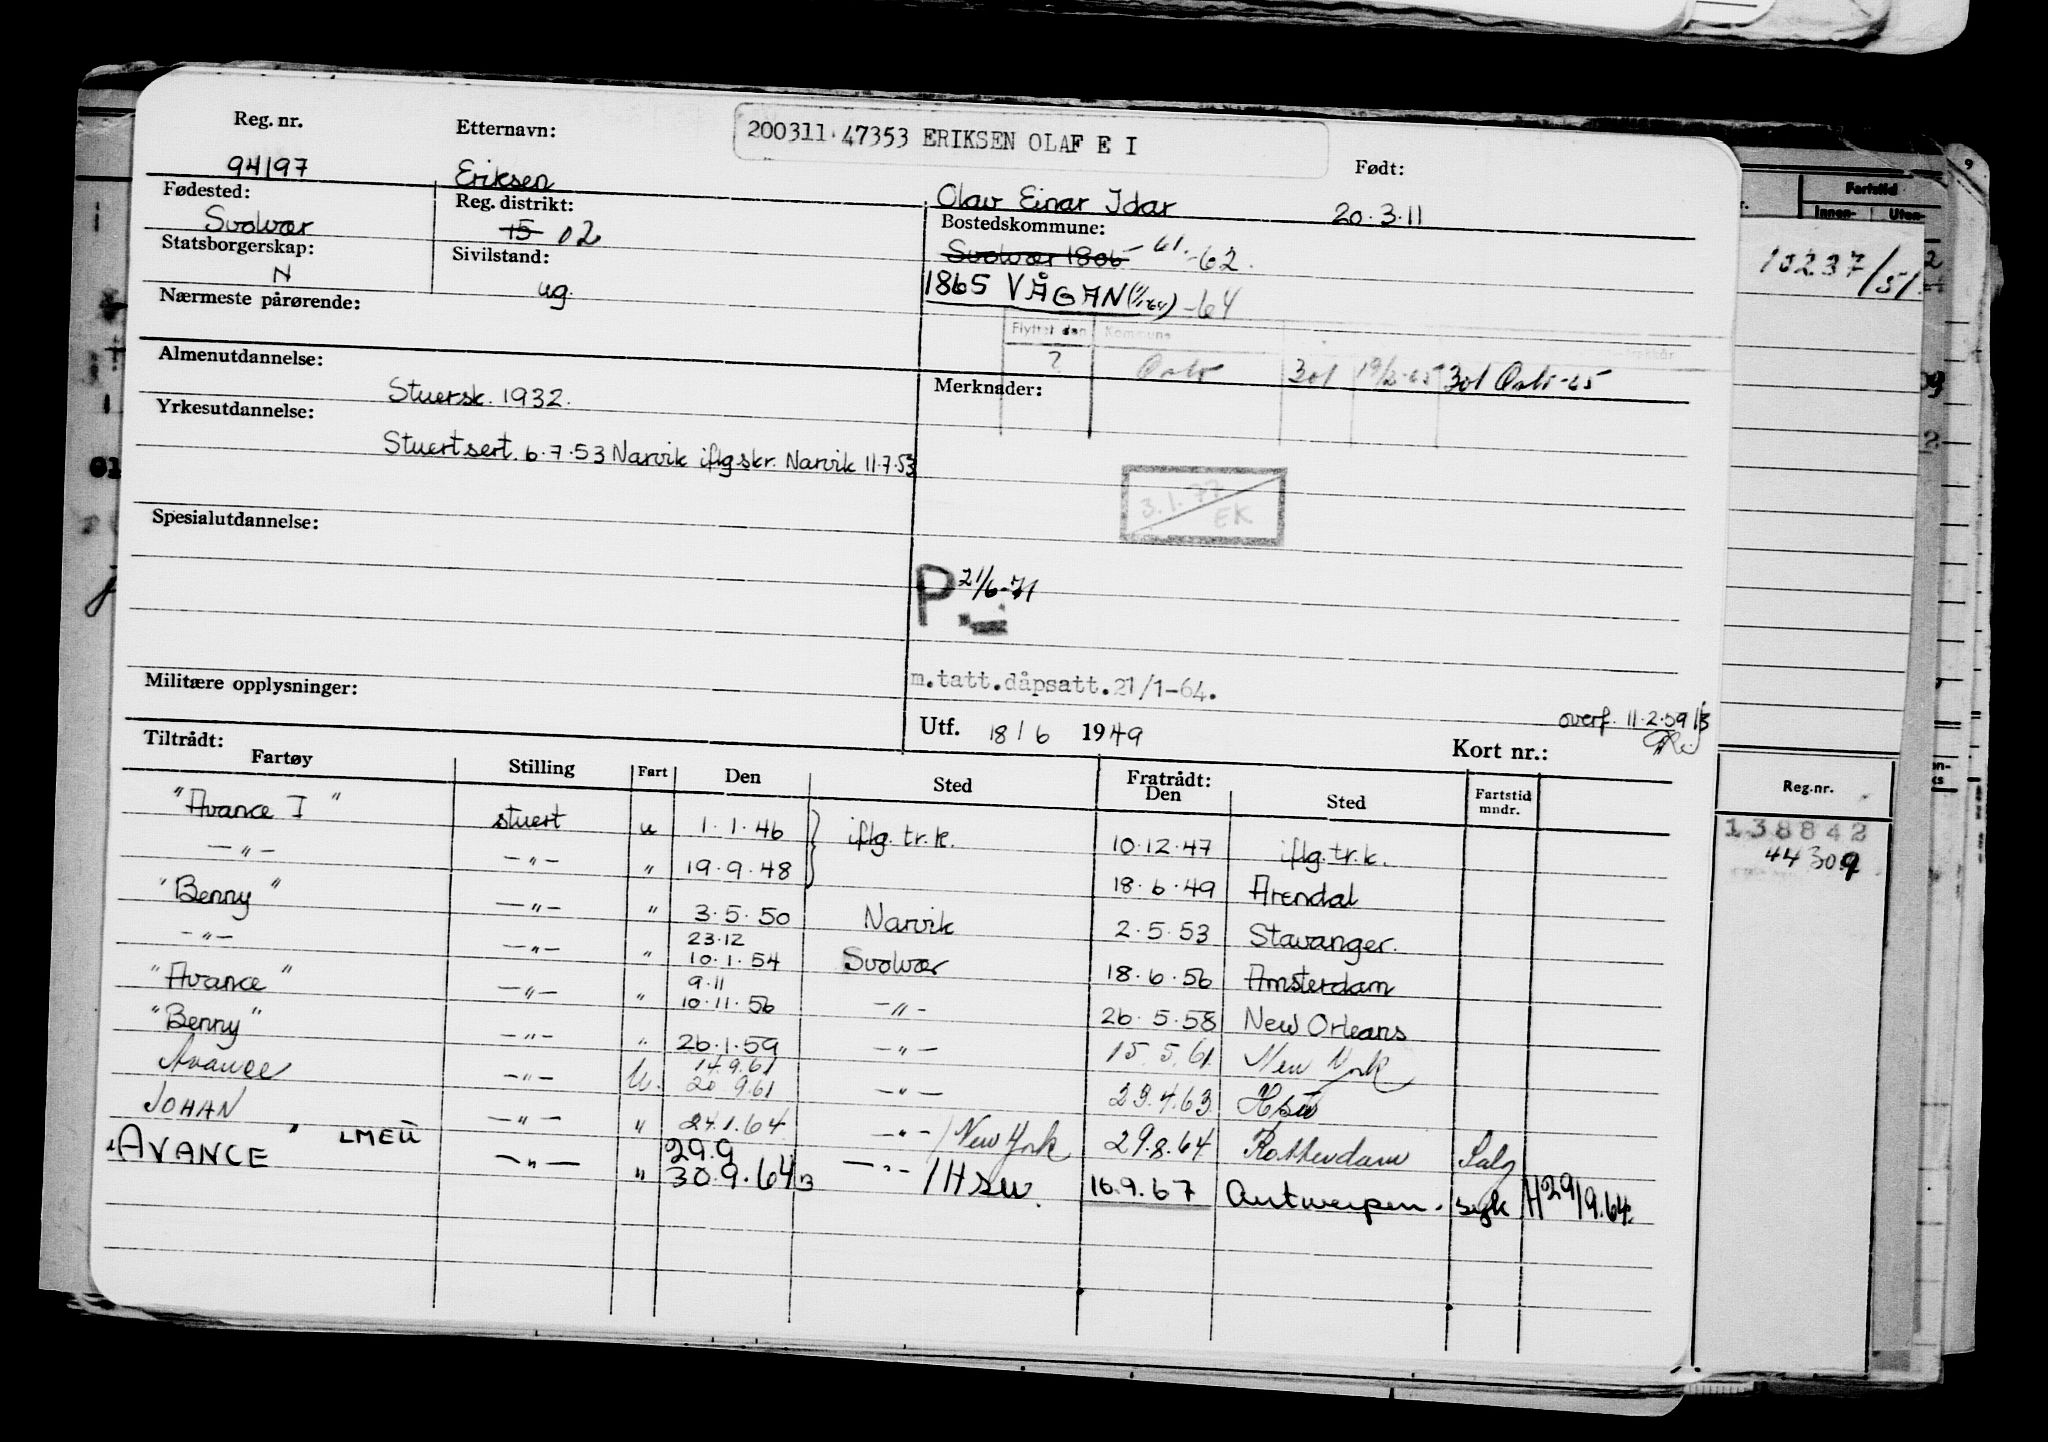 200311 47353 ERIKSEN OLAF E I
Reg. nr. Etternavn: Født:
94197 Eriksen Olav Einar Idar 20.3.11
Fødested: Reg. distrikt: Bostedskommune:
Svolvær 15 02 Svolvær 1806 -61.-62.
Statsborgerskap: Sivilstand:
N ug. 1865 VÅGAN (1/1-64) -64
Nærmeste pårørende:
Flyttet den Kommune
? Oslo 301 19/2-65 301 Oslo -65
Almenutdannelse: Merknader:
Stuersk. 1932.
Yrkesutdannelse:
Stuertsert. 6.7.53 Narvik iflg skr. Narvik 11.7.53
3.1.77
EK
Spesialutdannelse:
P 21/6-71
m.tatt.dåpsatt.21/1-64.
Militære opplysninger:
Utf. 18/6 1949 overf. 11.2.59
Kort nr.:
Tiltrådt: Fratrådt:
Fartøy Stilling Fart Den Sted Den Sted Fartstid mndr.
"Avance I" stuert u 1.1.46 iflg. tr. k. 10.12.47 iflg. tr. k.
-"- -"- " 19.9.48 18.6.49 Arendal
"Benny" -"- " 3.5.50 Narvik 2.5.53 Stavanger.
23.12
-"- -"- " 10.1.54 Svolvær 18.6.56 Amsterdam
9.11
"Avance" -"- " 10.11.56 -"- 26.5.58 New Orleans
"Benny" -"- " 26.1.59 -"- 15.5.61 New York
14.9.61
Avance -"- U. 20.9.61 -"- 23.4.63
JOHAN -"- " 24.1.64 -"- / New York 29.8.64 Rotterdam Salg
29.9
"AVANCE" LMEU -"- " 30.9.64 -"- / 16.9.67 Antwerpen. syk H 29/9.64.
Fartstid
Innen- Uten-
10237/51
Reg.nr.
138842
44309